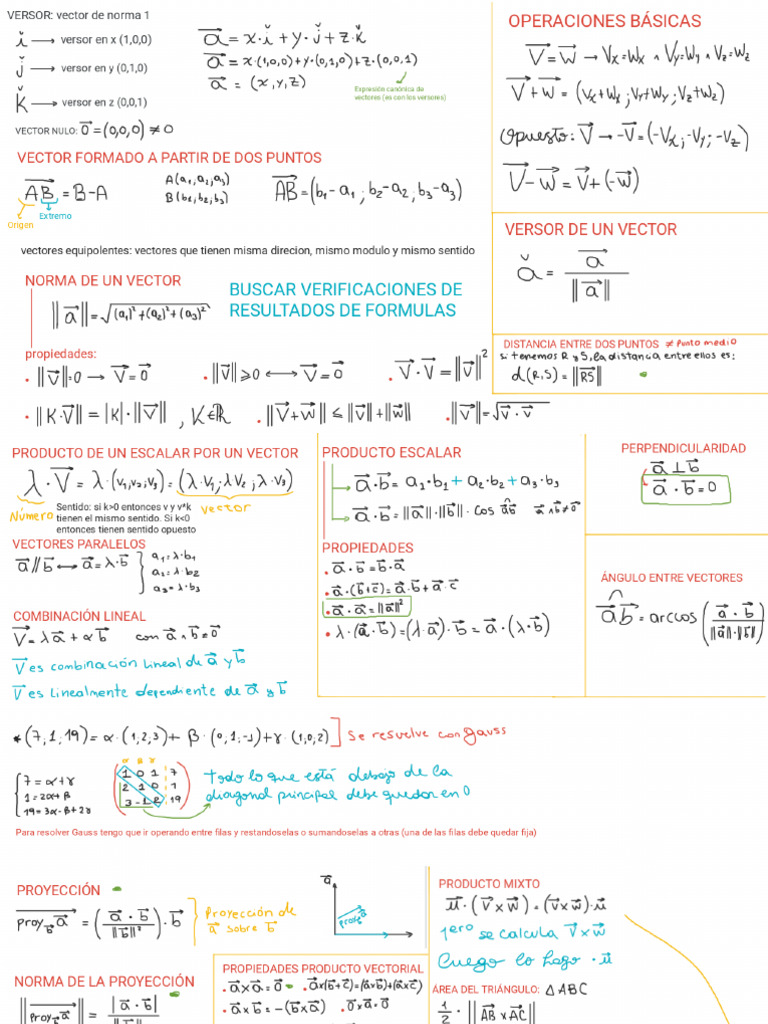 VERSOR: vector de norma 1
ǐ → versor en x (1,0,0)
ǰ → versor en y (0,1,0)
ǩ → versor en z (0,0,1)
VECTOR NULO: 0⃗ = (0,0,0) ≠ 0
a⃗ = x·ǐ + y·ǰ + z·ǩ
a⃗ = x·(1,0,0)+y·(0,1,0)+z·(0,0,1)
a⃗ = (x,y,z)
Expresión canónica de
vectores (es con los versores)
OPERACIONES BÁSICAS
V⃗ = W⃗ → Vx=Wx ∧ Vy=Wy ∧ Vz=Wz
V⃗ + W⃗ = (Vx+Wx ; Vy+Wy ; Vz+Wz)
Opuesto: V⃗ → -V⃗ = (-Vx ; -Vy ; -Vz)
V⃗ - W⃗ = V⃗ + (-W⃗)
VECTOR FORMADO A PARTIR DE DOS PUNTOS
AB⃗ = B-A
Origen
Extremo
A(a₁,a₂,a₃)
B(b₁,b₂,b₃)
AB⃗ = (b₁-a₁ ; b₂-a₂ ; b₃-a₃)
vectores equipolentes: vectores que tienen misma direcion, mismo modulo y mismo sentido
VERSOR DE UN VECTOR
ǎ = a⃗ / ||a⃗||
NORMA DE UN VECTOR
||a⃗|| = √((a₁)²+(a₂)²+(a₃)²)
BUSCAR VERIFICACIONES DE
RESULTADOS DE FORMULAS
DISTANCIA ENTRE DOS PUNTOS ≠ punto medio
si tenemos R y S, la distancia entre ellos es:
d(R,S) = ||RS⃗||
propiedades:
• ||V⃗||=0 → V⃗=0⃗
• ||V⃗||⩾0 ↔ V⃗=0⃗
• V⃗·V⃗=||V⃗||²
• ||K·V⃗||=|K|·||V⃗|| , K∈ℝ
• ||V⃗+W⃗|| ≤ ||V⃗||+||W⃗||
• ||V⃗||=√(V⃗·V⃗)
PRODUCTO DE UN ESCALAR POR UN VECTOR
λ·V⃗ = λ·(V₁,V₂,V₃)=(λ·V₁ ; λV₂ ; λ·V₃)
Número
vector
Sentido: si k>0 entonces v y v*k
tienen el mismo sentido. Si k<0
entonces tienen sentido opuesto
VECTORES PARALELOS
a⃗//b⃗ ↔ a⃗=λ·b⃗
a₁=λ·b₁
a₂=λ·b₂
a₃=λ·b₃
COMBINACIÓN LINEAL
V⃗=λa⃗+αb⃗ con a⃗∧b⃗≠0⃗
V⃗ es combinación lineal de a⃗ y b⃗
V⃗ es linealmente dependiente de a⃗ y b⃗
PRODUCTO ESCALAR
a⃗·b⃗ = a₁·b₁ + a₂·b₂ + a₃·b₃
a⃗·b⃗ = ||a⃗||·||b⃗||·cos a⃗b⃗ a⃗∧b⃗≠0⃗
PROPIEDADES
• a⃗·b⃗=b⃗·a⃗
• a⃗·(b⃗+c⃗)=a⃗·b⃗+a⃗·c⃗
• a⃗·a⃗=||a⃗||²
• λ·(a⃗·b⃗)=(λ·a⃗)·b⃗=a⃗·(λ·b⃗)
PERPENDICULARIDAD
a⃗⊥b⃗
a⃗·b⃗=0
ÁNGULO ENTRE VECTORES
a⃗b⃗=arccos(a⃗·b⃗ / ||a⃗||·||b⃗||)
*(7,1,19)=α·(1,2,3)+β·(0,1,-1)+γ·(1,0,2) Se resuelve con gauss
7=α+γ
1=2α+β
19=3α-β+2γ
α β γ
1 0 1 7
2 1 0 1
3 -1 2 19
Todo lo que está debajo de la
diagonal principal debe quedar en 0
Para resolver Gauss tengo que ir operando entre filas y restandoselas o sumandoselas a otras (una de las filas debe quedar fija)
PROYECCIÓN
proy_b⃗ a⃗ = (a⃗·b⃗ / ||b⃗||²)·b⃗
Proyección de
a⃗ sobre b⃗
a⃗
proy a⃗
PRODUCTO MIXTO
u⃗·(V⃗×W⃗)=(V⃗×W⃗)·u⃗
1ero se calcula V⃗×W⃗
Luego lo hago ·u⃗
NORMA DE LA PROYECCIÓN
||proy_b⃗ a⃗|| = |a⃗·b⃗| / ||b⃗||
PROPIEDADES PRODUCTO VECTORIAL
• a⃗×a⃗=0⃗ • a⃗×(b⃗+c⃗)=(a⃗×b⃗)+(a⃗×c⃗)
• a⃗×b⃗=-(b⃗×a⃗) • 0⃗×a⃗=0⃗
ÁREA DEL TRIÁNGULO: △ABC
1/2·||AB⃗×AC⃗||